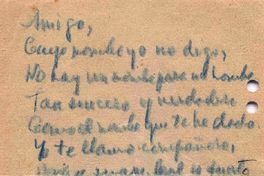 Amigo,
Cuyo nombre yo no digo,
No hay un nombre para un hombre
Tan sincero y verdadero
Como el nombre que te he dado.
Yo te llamo compañero,